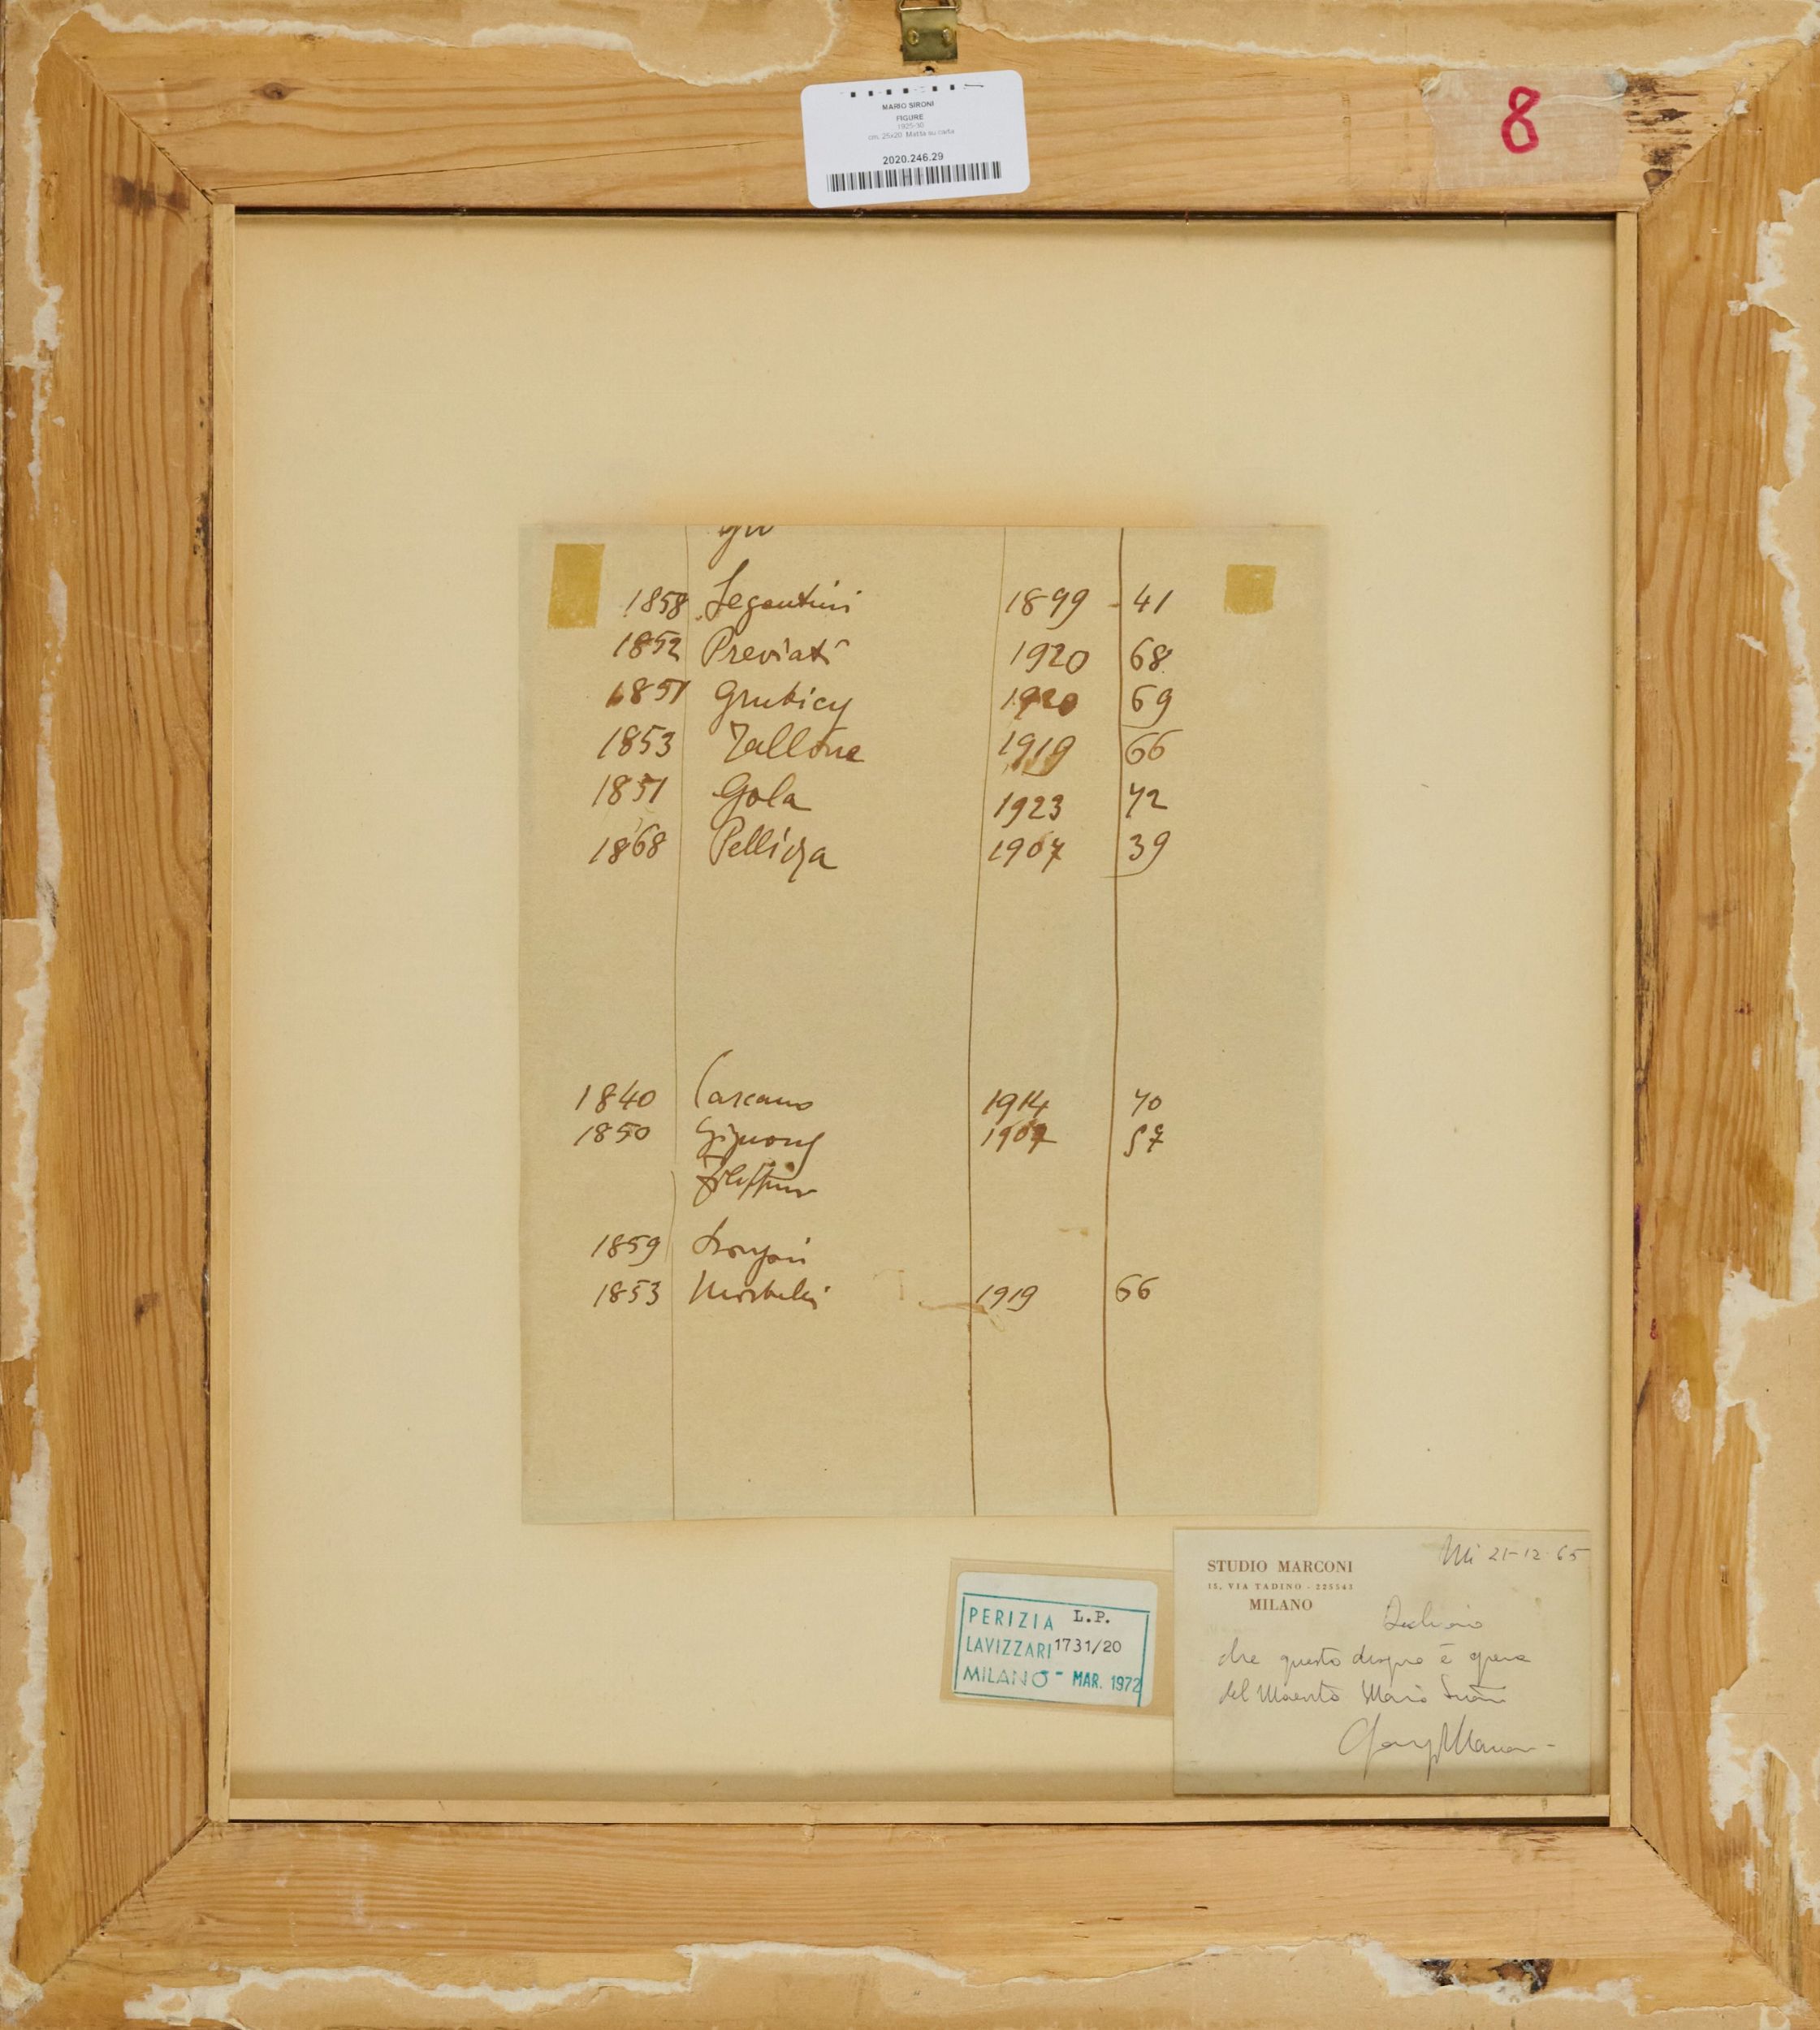 MARIO SIRONI
FIGURE
1925-30
cm. 25x20 Matita su carta
2020.246.29
8
1858 Segantini 1899 - 41
1852 Previati 1920 68
1851 Grubicy 1920 69
1853 Tallone 1919 66
1851 Gola 1923 72
1868 Pellizza 1907 39
1840 Carcano 1914 70
1850 Gignous 1907 57
Filippini
1859 Longoni
1853 Morbelli 1919 66
PERIZIA L.P.
LAVIZZARI 1731/20
MILANO - MAR. 1972
STUDIO MARCONI
15, VIA TADINO - 225543
MILANO
Mi 21-12-65
Dichiaro
che questo disegno è opera
del Maestro Mario Sironi